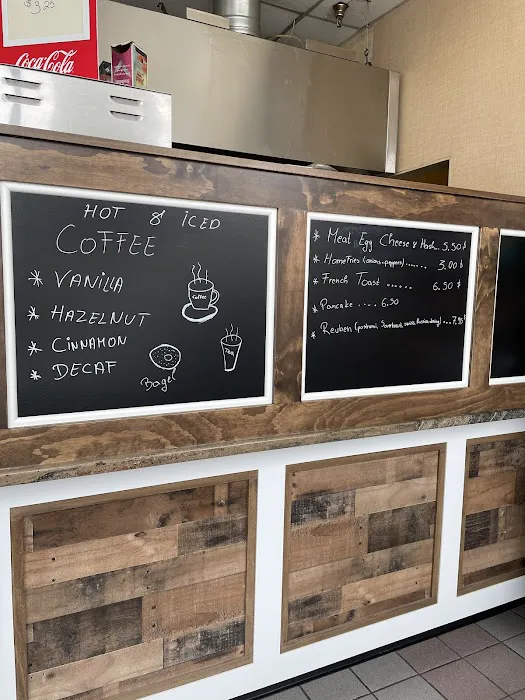 $3.25
Coca-Cola
HOT & iCED
COFFEE
* VANillA
* HAZELNUT
* CiNNAMON
* DECAF
Coffee
Tea
Bagel
* Meat Egg Cheese & Hash.. 5.50 $
* HomeFries (onions-peppers)...... 3.00 $
* French Toast ...... 6.50 $
* Pancake .... 6.50
* Reuben (pastrami, Sauerkraut, swiss, Russian dressing) ...7.95 $